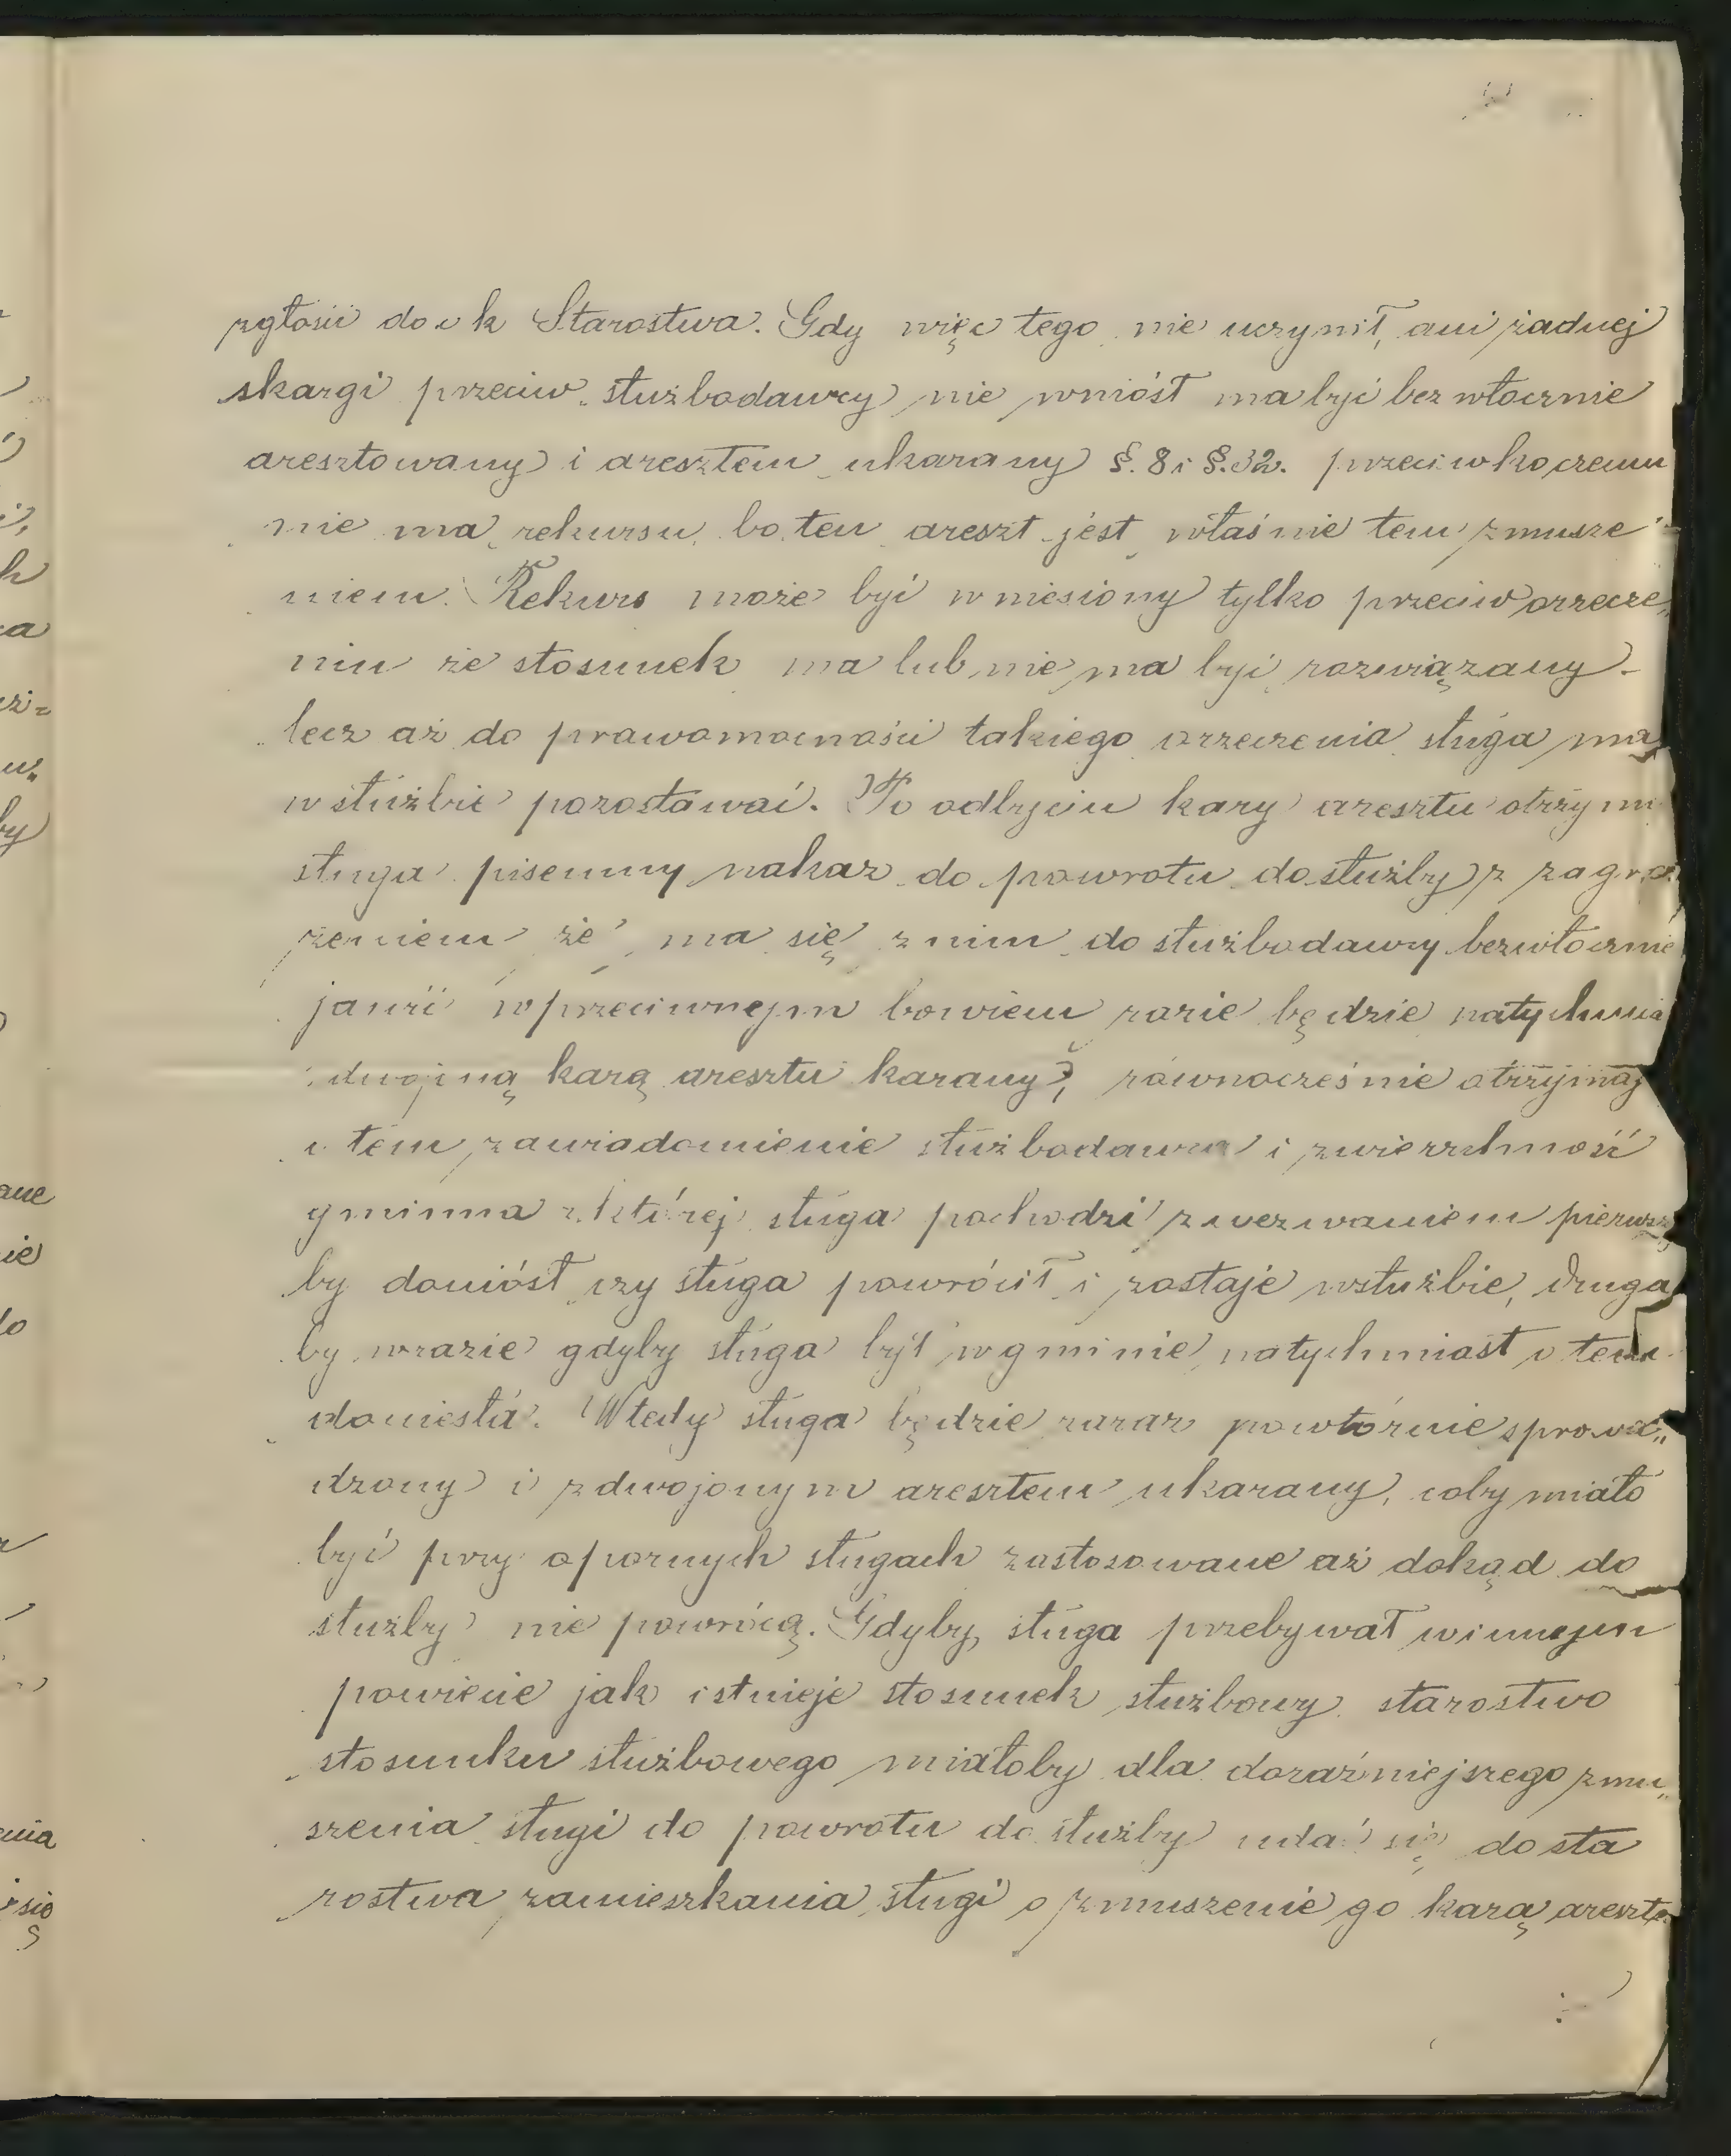 zgłosić do c k Starostwa. Gdy więc tego nie uczynił, ani żadnej
skargi przeciw służbodawcy nie wniósł ma być bezwłocznie
aresztowany i aresztem ukarany §. 8 i §. 32. przeciwko czemu
nie ma rekursu, bo ten areszt jest właśnie tem zmusze
niem. Rekurs może być wniesiony tylko przeciw orzecze„
niu że stosunek ma lub nie ma być rozwiązany –
lecz aż do prawomocności takiego orzeczenia sługa ma
w służbie pozostawać. Po odbyciu kary aresztu otrzyma
sługa pisemny nakaz do powrotu do służby z zagro
żeniem że ma się z nim do służbodawcy bezwłocznie
jawić w przeciwnym bowiem razie będzie natychmia
dwojną karą aresztu karany, równocześnie otrzymają
o tem zawiadomienie służbodawca i zwierzchność
gminna z której sługa pochodzi z wezwaniem pierwszy
by doniósł czy sługa powrócił i zostaje w służbie, druga
by w razie gdyby sługa był w gminie natychmiast o tem
doniosła. Wtedy sługa będzie zaraz powtórnie sprowa„
dzony i zdwojonym aresztem ukarany, coby miało
być przy opornych sługach zastosowane aż dokąd do
służby nie powrócą. Gdyby sługa przebywał w innym
powiecie jak istnieje stosunek służbowy starostwo
stosunku służbowego miałoby dla doraźniejszego zmu„
szenia sługi do powrotu do służby udać się do sta
rostwa zamieszkania sługi o zmuszenie go karą aresztu